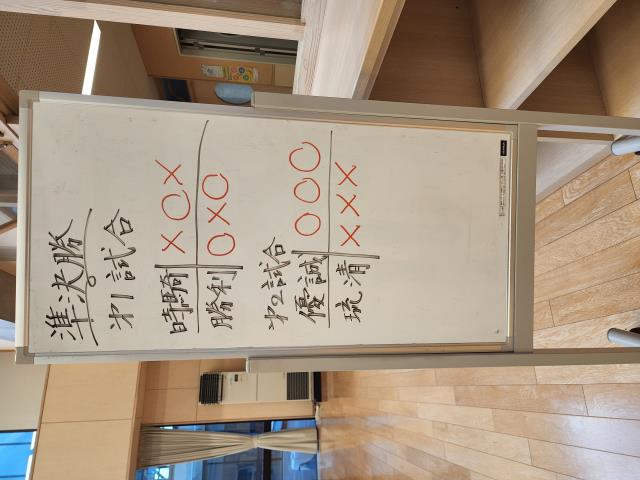 準決勝
第1試合
時騎 × ○ ×
勝利 ○ × ○
第2試合
優誠 ○ ○ ○
琉清 × × ×